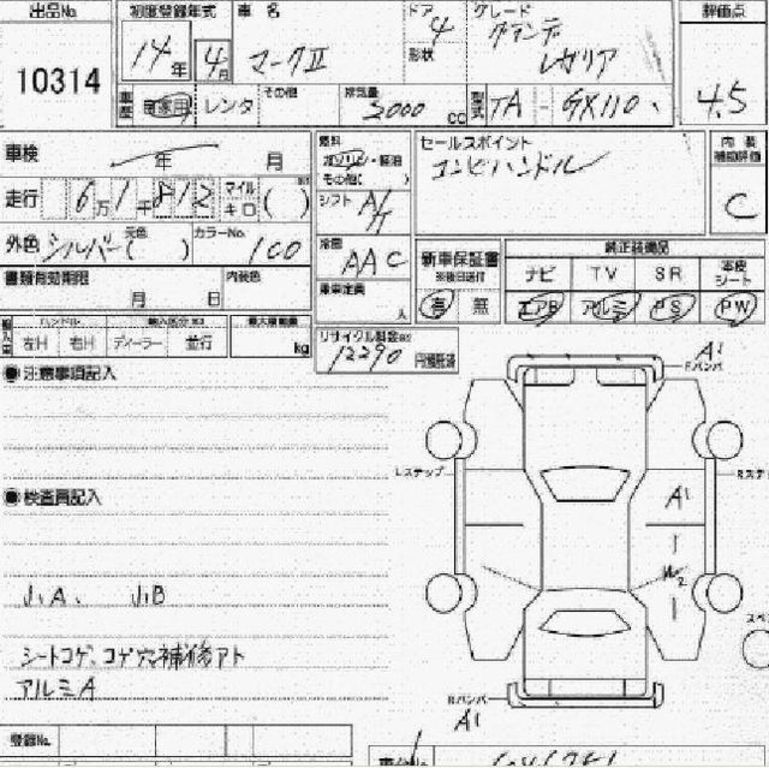 出品No. 初度登録年式 車名 ドア グレード 評価点
10314 14年 4月 マークⅡ 4 形状 グランデ レガリア 4.5
車歴 自家用 レンタ その他 排気量 2000 cc 型式 TA - GX110
車検 年 月 燃料 ガソリン・軽油 その他( ) セールスポイント 内装補助評価
コンビハンドル C
走行 6万1千812 マイル キロ ( ) シフト A/T
外色 シルバー 元色( ) カラーNo. 100 冷房 AAC 新車保証書 ※後日送付 有 無 純正装備品
ナビ TV SR 革皮シート
エアB アルミ PS PW
書類有効期限 月 日 内装色 乗車定員 人
輸入車 ハンドル 左H 右H 輸入区分 ディーラー 並行 最大積載量 kg リサイクル料金 12290 円預託済
●注意事項記入
A1 Fバンパ
Lステップ Rステップ
●検査員記入
A1
W2
J.A、 J.B
シートコゲ、コゲ穴補修アト
アルミA
Rバンパ
A1
登録No.